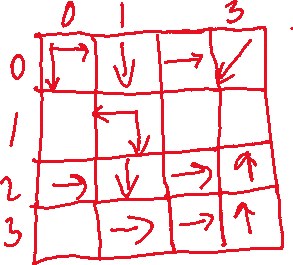 0 1 3
0
1
2
3